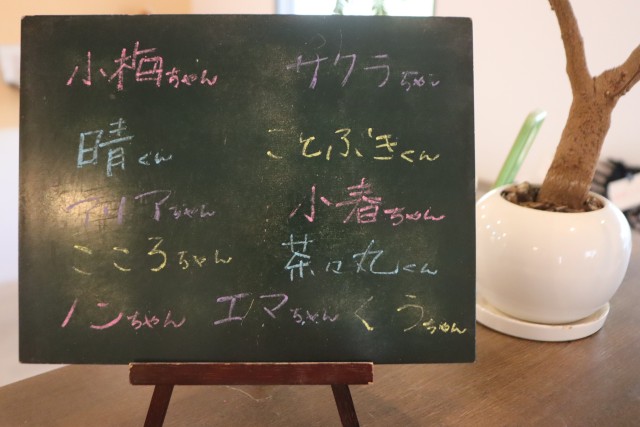 小梅ちゃん サクラちゃん
晴くん ことぶきくん
アリアちゃん 小春ちゃん
こころちゃん 茶々丸くん
ノンちゃん エマちゃん くうちゃん